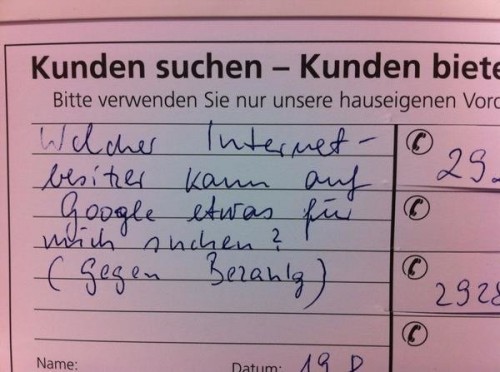 Kunden suchen – Kunden biete
Bitte verwenden Sie nur unsere hauseigenen Vord
Welcher Internet-
besitzer kann auf
Google etwas für
mich suchen?
(Gegen Bezahlg)
29
2928
Name:
Datum: 19.